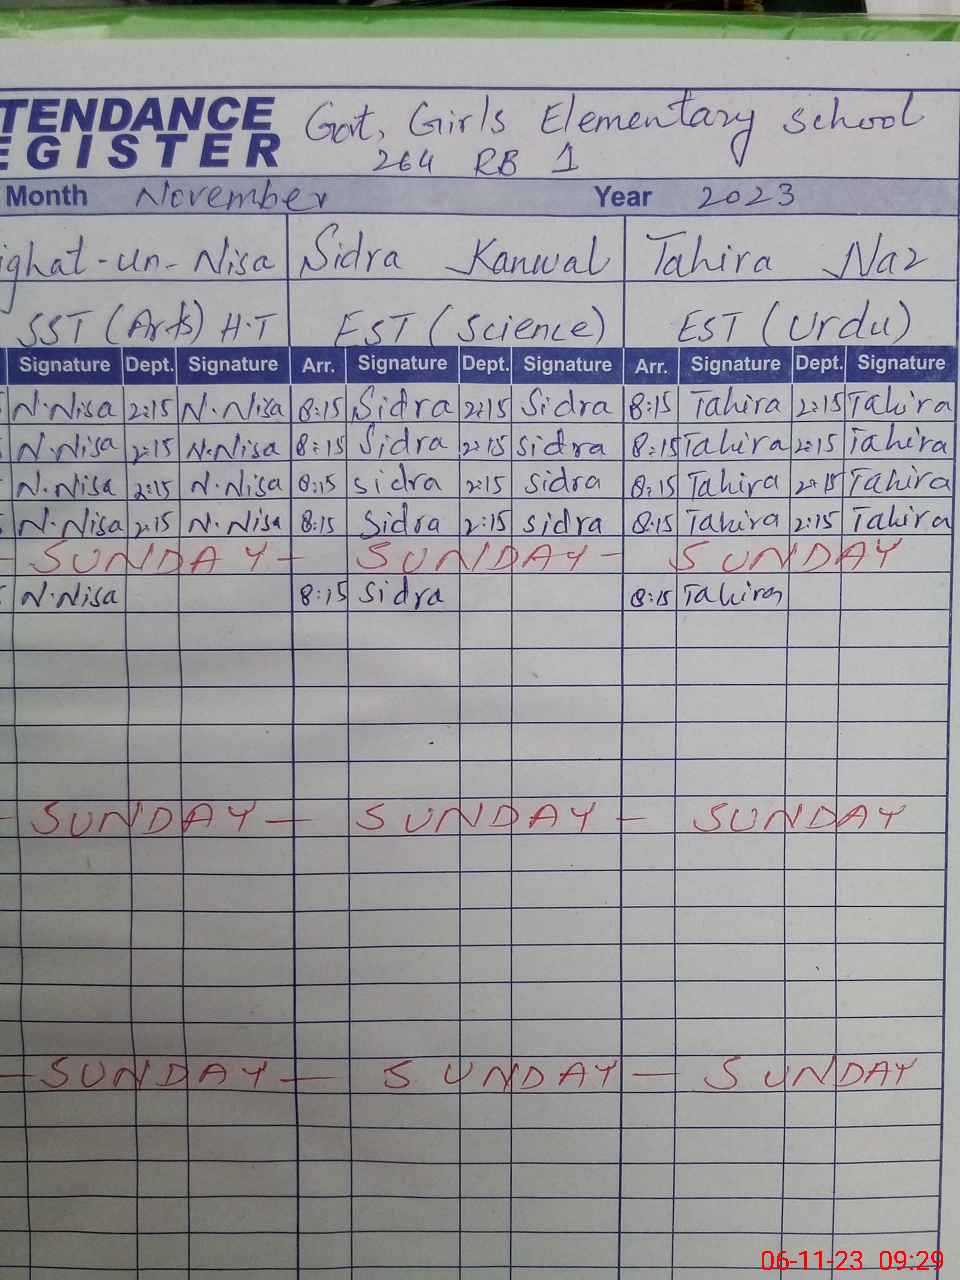 TENDANCE Govt, Girls Elementary School
EGISTER 264 RB 1
Month November Year 2023
ighat-un-Nisa Sidra Kanwal Tahira Naz
SST (Arts) H.T EST (Science) EST (Urdu)
Signature Dept. Signature Arr. Signature Dept. Signature Arr. Signature Dept. Signature
N.Nisa 2:15 N.Nisa 8:15 Sidra 2:15 Sidra 8:15 Tahira 2:15 Tahira
N.Nisa 2:15 N.Nisa 8:15 Sidra 2:15 sidra 8:15 Tahira 2:15 Tahira
N.Nisa 2:15 N.Nisa 8:15 sidra 2:15 sidra 8:15 Tahira 2:15 Tahira
N.Nisa 2:15 N.Nisa 8:15 Sidra 2:15 sidra 8:15 Tahira 2:15 Tahira
- SUNDAY - SUNDAY - SUNDAY
N.Nisa 8:15 Sidra 8:15 Tahira
- SUNDAY - SUNDAY - SUNDAY
- SUNDAY - SUNDAY - SUNDAY
06-11-23 09:29